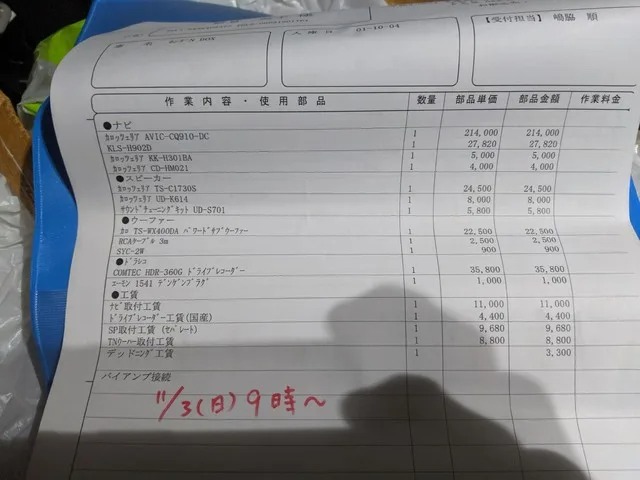 様
車名 ムーヴN BOX
入庫日 01-10-04
【受付担当】 嶋脇 順
作業内容・使用部品 数量 部品単価 部品金額 作業料金
●ナビ
ｶﾛｯﾂｪﾘｱ AVIC-CQ910-DC 1 214,000 214,000
KLS-H902D 1 27,820 27,820
ｶﾛｯﾂｪﾘｱ KK-H301BA 1 5,000 5,000
ｶﾛｯﾂｪﾘｱ CD-HM021 1 4,000 4,000
●スピーカー
ｶﾛｯﾂｪﾘｱ TS-C1730S 1 24,500 24,500
ｶﾛｯﾂｪﾘｱ UD-K614 1 8,000 8,000
ｻｳﾝﾄﾞﾁｭｰﾆﾝｸﾞｷｯﾄ UD-S701 1 5,800 5,800
●ウーファー
ｶﾛ TS-WX400DA ﾊﾟﾜｰﾄﾞｻﾌﾞｳｰﾌｧｰ 1 22,500 22,500
RCAｹｰﾌﾞﾙ 3m 1 2,500 2,500
SYC-2W 1 900 900
●ﾄﾞﾗﾚｺ
COMTEC HDR-360G ﾄﾞﾗｲﾌﾞﾚｺｰﾀﾞｰ 1 35,800 35,800
ｴｰﾓﾝ 1541 ﾃﾞﾝｹﾞﾝﾌﾟﾗｸﾞ 1 1,000 1,000
●工賃
ﾅﾋﾞ取付工賃 1 11,000 11,000
ﾄﾞﾗｲﾌﾞﾚｺｰﾀﾞｰ工賃(国産) 1 4,400 4,400
SP取付工賃 (ｾﾊﾟﾚｰﾄ) 1 9,680 9,680
TNｳｰﾊｰ取付工賃 1 8,800 8,800
デッドニング工賃 1 3,300
バイアンプ接続
11/3(日) 9時～